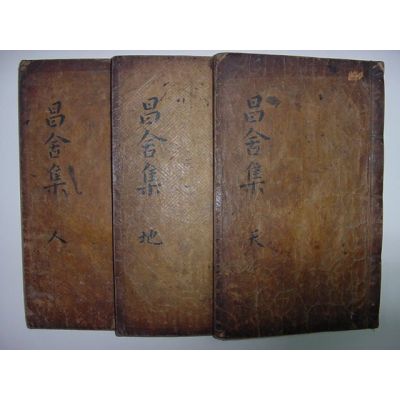 昌舍集
天
昌舍集
地
昌舍集
人